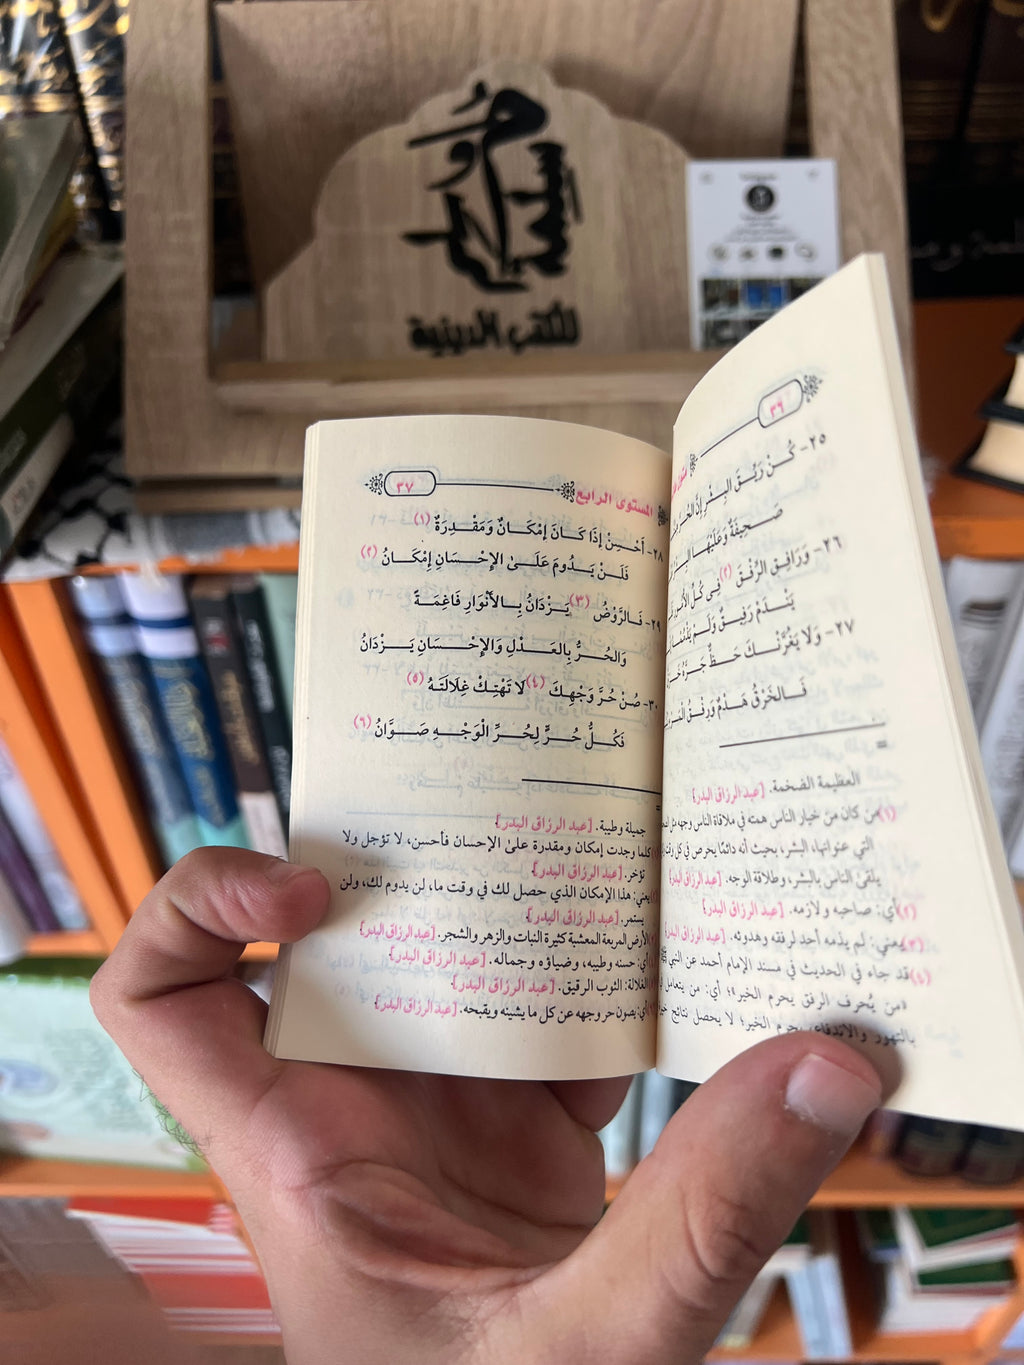 للكتب الدينية
٣٦
٢٥- كُنْ رَيِّقَ البِشْرِ إِنَّ الحُرَّ
صَحِيفَةٌ وَعَلَيْهَا
٢٦- وَرَافِقِ الرِّفْقَ (٢) فِي كُلِّ
يَنْدَمْ رَفِيقٌ وَلَمْ
٢٧- وَلَا يَغُرَّنْكَ حَظٌّ جَرَّهُ
فَالخَرْقُ هَدْمٌ وَرِفْقُ
=
العظيمة الضخمة. [عبد الرزاق البدر]
(١) من كان من خيار الناس همته في ملاقاة الناس وجهه
التي عنوانها، البشر، بحيث أنه دائمًا يحرص في كل
يلقى الناس بالبشر، وطلاقة الوجه. [عبد الرزاق البدر]
(٢) أي: صاحبه ولازمه. [عبد الرزاق البدر]
(٣) يعني: لم يذمه أحد لرفقه وهدوئه. [عبد الرزاق البدر]
(٤) قد جاء في الحديث في مسند الإمام أحمد عن النبي ﷺ
«من يُحرف الرفق يحرم الخير»؛ أي: من يتعامل
بالتهور والاندفاع، يحرم الخير؛ لا يحصل نتائج
المستوى الرابع
٣٧
٢٨- أَحْسِنْ إِذَا كَانَ إِمْكَانٌ وَمَقْدِرَةٌ (١)
فَلَنْ يَدُومَ عَلَىٰ الإِحْسَانِ إِمْكَانُ (٢)
٢٩- فَالرَّوْضُ (٣) يَزْدَانُ بِالأَنْوَارِ فَاغِمَةً
وَالحُرُّ بِالعَدْلِ وَالإِحْسَانِ يَزْدَانُ
٣٠- صُنْ حُرَّ وَجْهِكَ (٤) لَا تَهْتِكْ غِلَالَتَهُ (٥)
فَكُلُّ حُرٍّ لِحُرِّ الْوَجْهِ صَوَّانُ (٦)
=
جميلة وطيبة. [عبد الرزاق البدر]
كلما وجدت إمكان ومقدرة علىٰ الإحسان فأحسن، لا تؤجل ولا
تؤخر. [عبد الرزاق البدر]
يعني: هذا الإمكان الذي حصل لك في وقت ما، لن يدوم لك، ولن
يستمر. [عبد الرزاق البدر]
الأرض المربعة المعشبة كثيرة النبات والزهر والشجر. [عبد الرزاق البدر]
أي: حسنه وطيبه، وضياؤه وجماله. [عبد الرزاق البدر]
الغلالة: الثوب الرقيق. [عبد الرزاق البدر]
أي: يصون حر وجهه عن كل ما يشينه ويقبحه. [عبد الرزاق البدر]